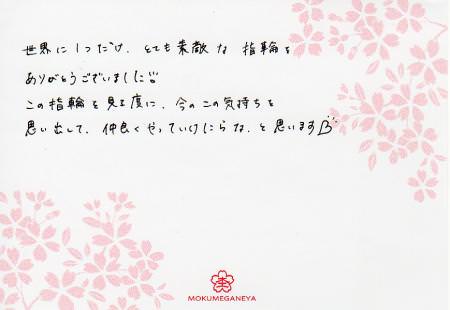 世界に1つだけ、とても素敵な 指輪を
ありがとうございました!!
この指輪を見る度に、今のこの気持ちを
思い出して、仲良くやっていけたらな、と思います
MOKUMEGANEYA